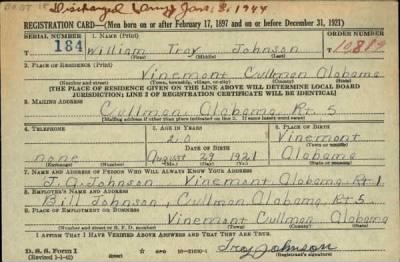 Discharged Army Jan. 3, 1944
REGISTRATION CARD—(Men born on or after February 17, 1897 and on or before December 31, 1921)
SERIAL NUMBER 1. NAME (Print) ORDER NUMBER
184 William Troy Johnson 10889
(First) (Middle) (Last)
2. PLACE OF RESIDENCE (Print)
Vinemont Cullman Alabama
(Number and street) (Town, township, village, or city) (County) (State)
[THE PLACE OF RESIDENCE GIVEN ON THE LINE ABOVE WILL DETERMINE LOCAL BOARD
JURISDICTION; LINE 2 OF REGISTRATION CERTIFICATE WILL BE IDENTICAL]
3. MAILING ADDRESS
Cullman, Alabama, Rt. 5
[Mailing address if other than place indicated on line 2. If same insert word same]
4. TELEPHONE 5. AGE IN YEARS 6. PLACE OF BIRTH
20 Vinemont
DATE OF BIRTH (Town or county)
none August 29 1921 Alabama
(Exchange) (Number) (Mo.) (Day) (Yr.) (State or country)
7. NAME AND ADDRESS OF PERSON WHO WILL ALWAYS KNOW YOUR ADDRESS
Johnson Vinemont Alabama Rt 1
8. EMPLOYER'S NAME AND ADDRESS
Bill Johnson, Cullman Alabama, Rt. 5
9. PLACE OF EMPLOYMENT OR BUSINESS
Vinemont Cullman Alabama
(Number and street or R. F. D. number) (Town) (County) (State)
I AFFIRM THAT I HAVE VERIFIED ABOVE ANSWERS AND THAT THEY ARE TRUE.
D. S. S. Form 1 GPO Troy Johnson
(Revised 1-1-42) (Registrant's signature)